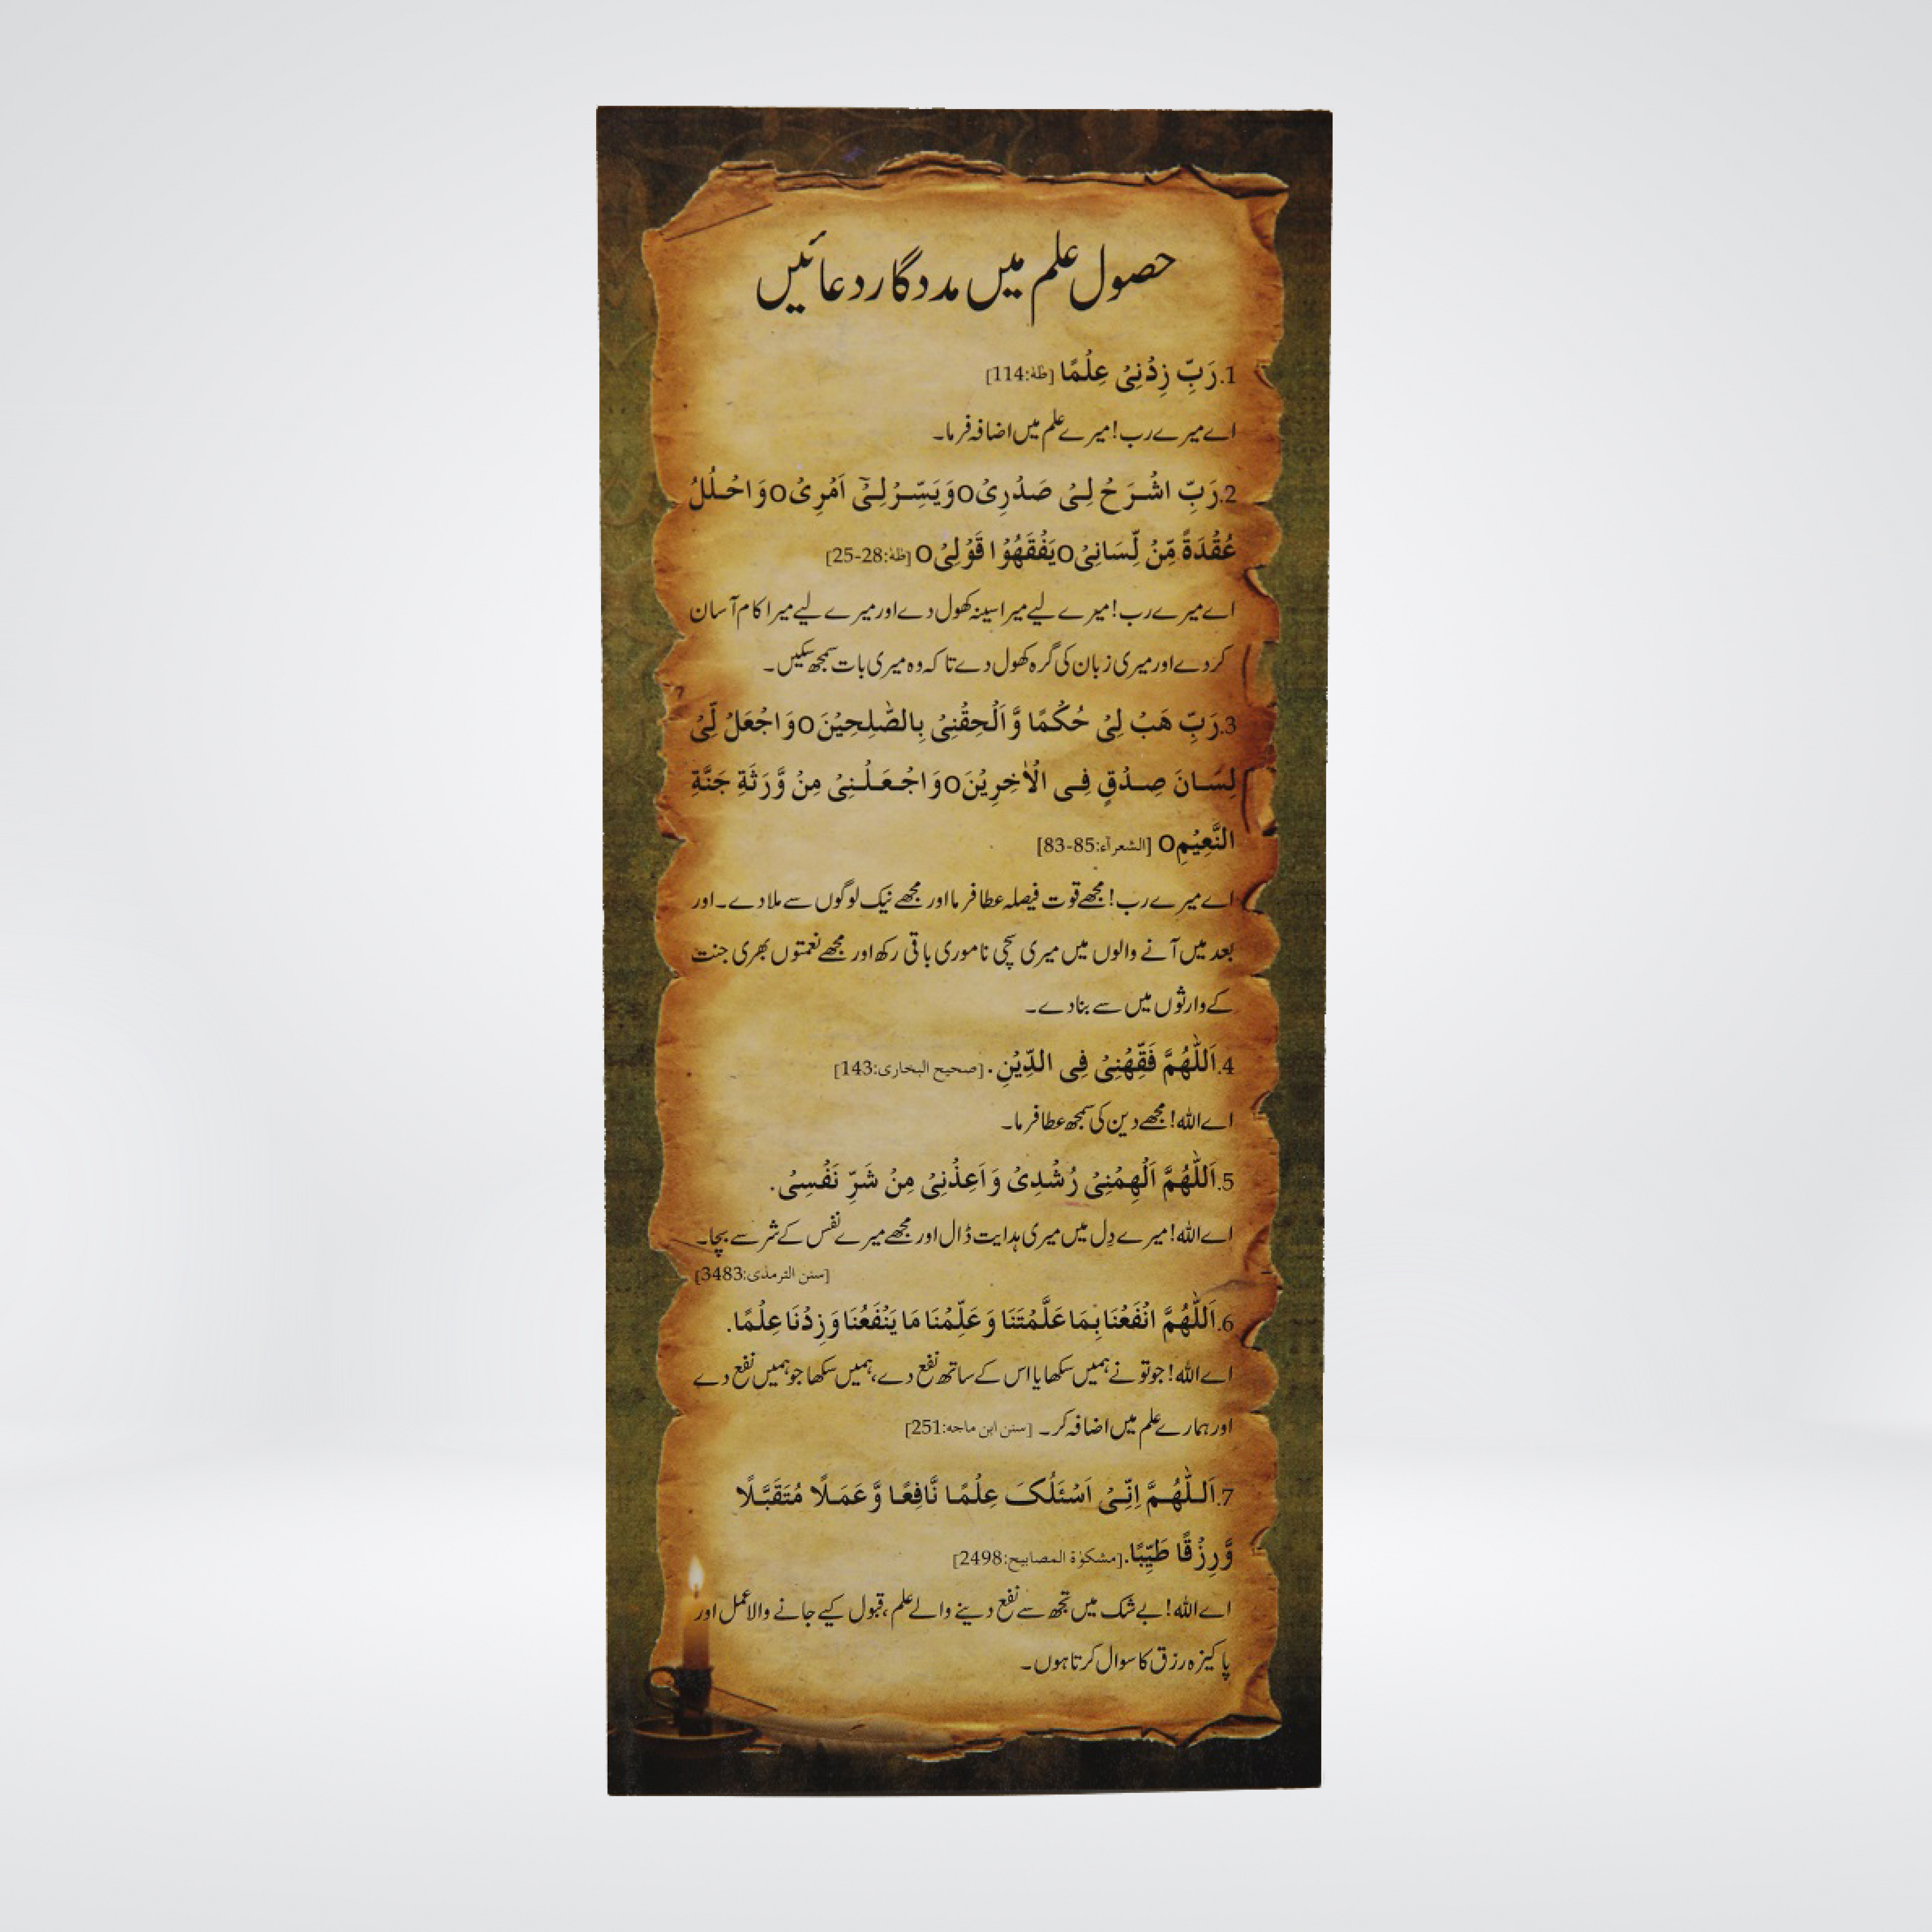 حصول علم میں مددگار دعائیں
1.رَبِّ زِدْنِیْ عِلْمًا [طٰهٰ:114]
اے میرے رب! میرے علم میں اضافہ فرما۔
2.رَبِّ اشْرَحْ لِیْ صَدْرِیْo وَیَسِّرْلِیْٓ اَمْرِیْo وَاحْلُلْ
عُقْدَةً مِّنْ لِّسَانِیْo یَفْقَهُوْا قَوْلِیْo [طٰهٰ:28-25]
اے میرے رب! میرے لیے میرا سینہ کھول دے اور میرے لیے میرا کام آسان
کر دے اور میری زبان کی گرہ کھول دے تاکہ وہ میری بات سمجھ سکیں۔
3.رَبِّ هَبْ لِیْ حُكْمًا وَّاَلْحِقْنِیْ بِالصّٰلِحِیْنَo وَاجْعَلْ لِّیْ
لِسَانَ صِدْقٍ فِی الْاٰخِرِیْنَo وَاجْعَلْنِیْ مِنْ وَّرَثَةِ جَنَّةِ
النَّعِیْمِo [الشعرآء:85-83]
اے میرے رب! مجھے قوت فیصلہ عطا فرما اور مجھے نیک لوگوں سے ملا دے۔ اور
بعد میں آنے والوں میں میری سچی ناموری باقی رکھ اور مجھے نعمتوں بھری جنت
کے وارثوں میں سے بنا دے۔
4.اَللّٰهُمَّ فَقِّهْنِیْ فِی الدِّیْنِ. [صحیح البخاری:143]
اے اللہ! مجھے دین کی سمجھ عطا فرما۔
5.اَللّٰهُمَّ اَلْهِمْنِیْ رُشْدِیْ وَاَعِذْنِیْ مِنْ شَرِّ نَفْسِیْ.
اے اللہ! میرے دِل میں میری ہدایت ڈال اور مجھے میرے نفس کے شر سے بچا۔
[سنن الترمذی:3483]
6.اَللّٰهُمَّ انْفَعْنَا بِمَا عَلَّمْتَنَا وَعَلِّمْنَا مَا یَنْفَعُنَا وَزِدْنَا عِلْمًا.
اے اللہ! جو تو نے ہمیں سکھایا اس کے ساتھ نفع دے، ہمیں سکھا جو ہمیں نفع دے
اور ہمارے علم میں اضافہ کر۔ [سنن ابن ماجه:251]
7.اَللّٰهُمَّ اِنِّیْ اَسْئَلُکَ عِلْمًا نَّافِعًا وَّعَمَلًا مُتَقَبَّلًا
وَّرِزْقًا طَیِّبًا. [مشکوٰة المصابیح:2498]
اے اللہ! بے شک میں تجھ سے نفع دینے والے علم، قبول کیے جانے والا عمل اور
پاکیزہ رزق کا سوال کرتا ہوں۔